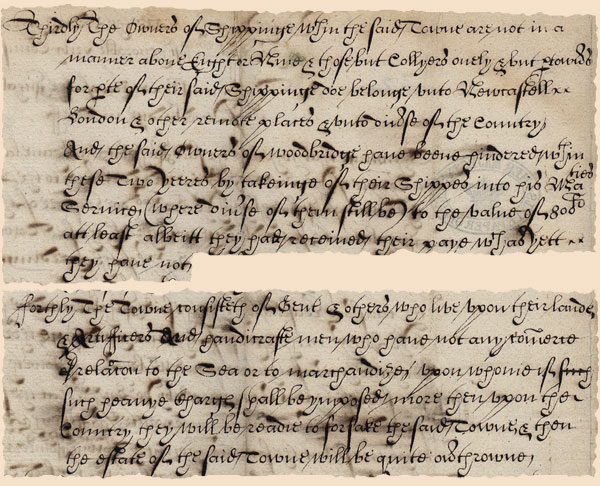 Thirdly The Owners of Shippinge wthin the said Towne are not in a
manner above Eight or Nine & those but Collyers onely & but
for pte of their said Shippinge doe belonge unto Newcastell
London & other remote places & unto divse of the Country
And the said Owners of Woodbridge have beene hindered wthin
these Two yeeres by takeinge of their Shippes into his Maties
Service (where divse of them still be) to the value of 800li
att least albeitt they had received their paye wch as yett
they have not
forthly The Towne consisteth of Gent & others who live upon their lands
& Artificers And handicrafte men who have not any comerce
or relacon to the Sea or to marchandize, upon whome if such
such heavye Charge shall be imposed more then upon the
Country they will be readie to forsake the said Towne & then
the estate of the said Towne will be quite ovthrowne